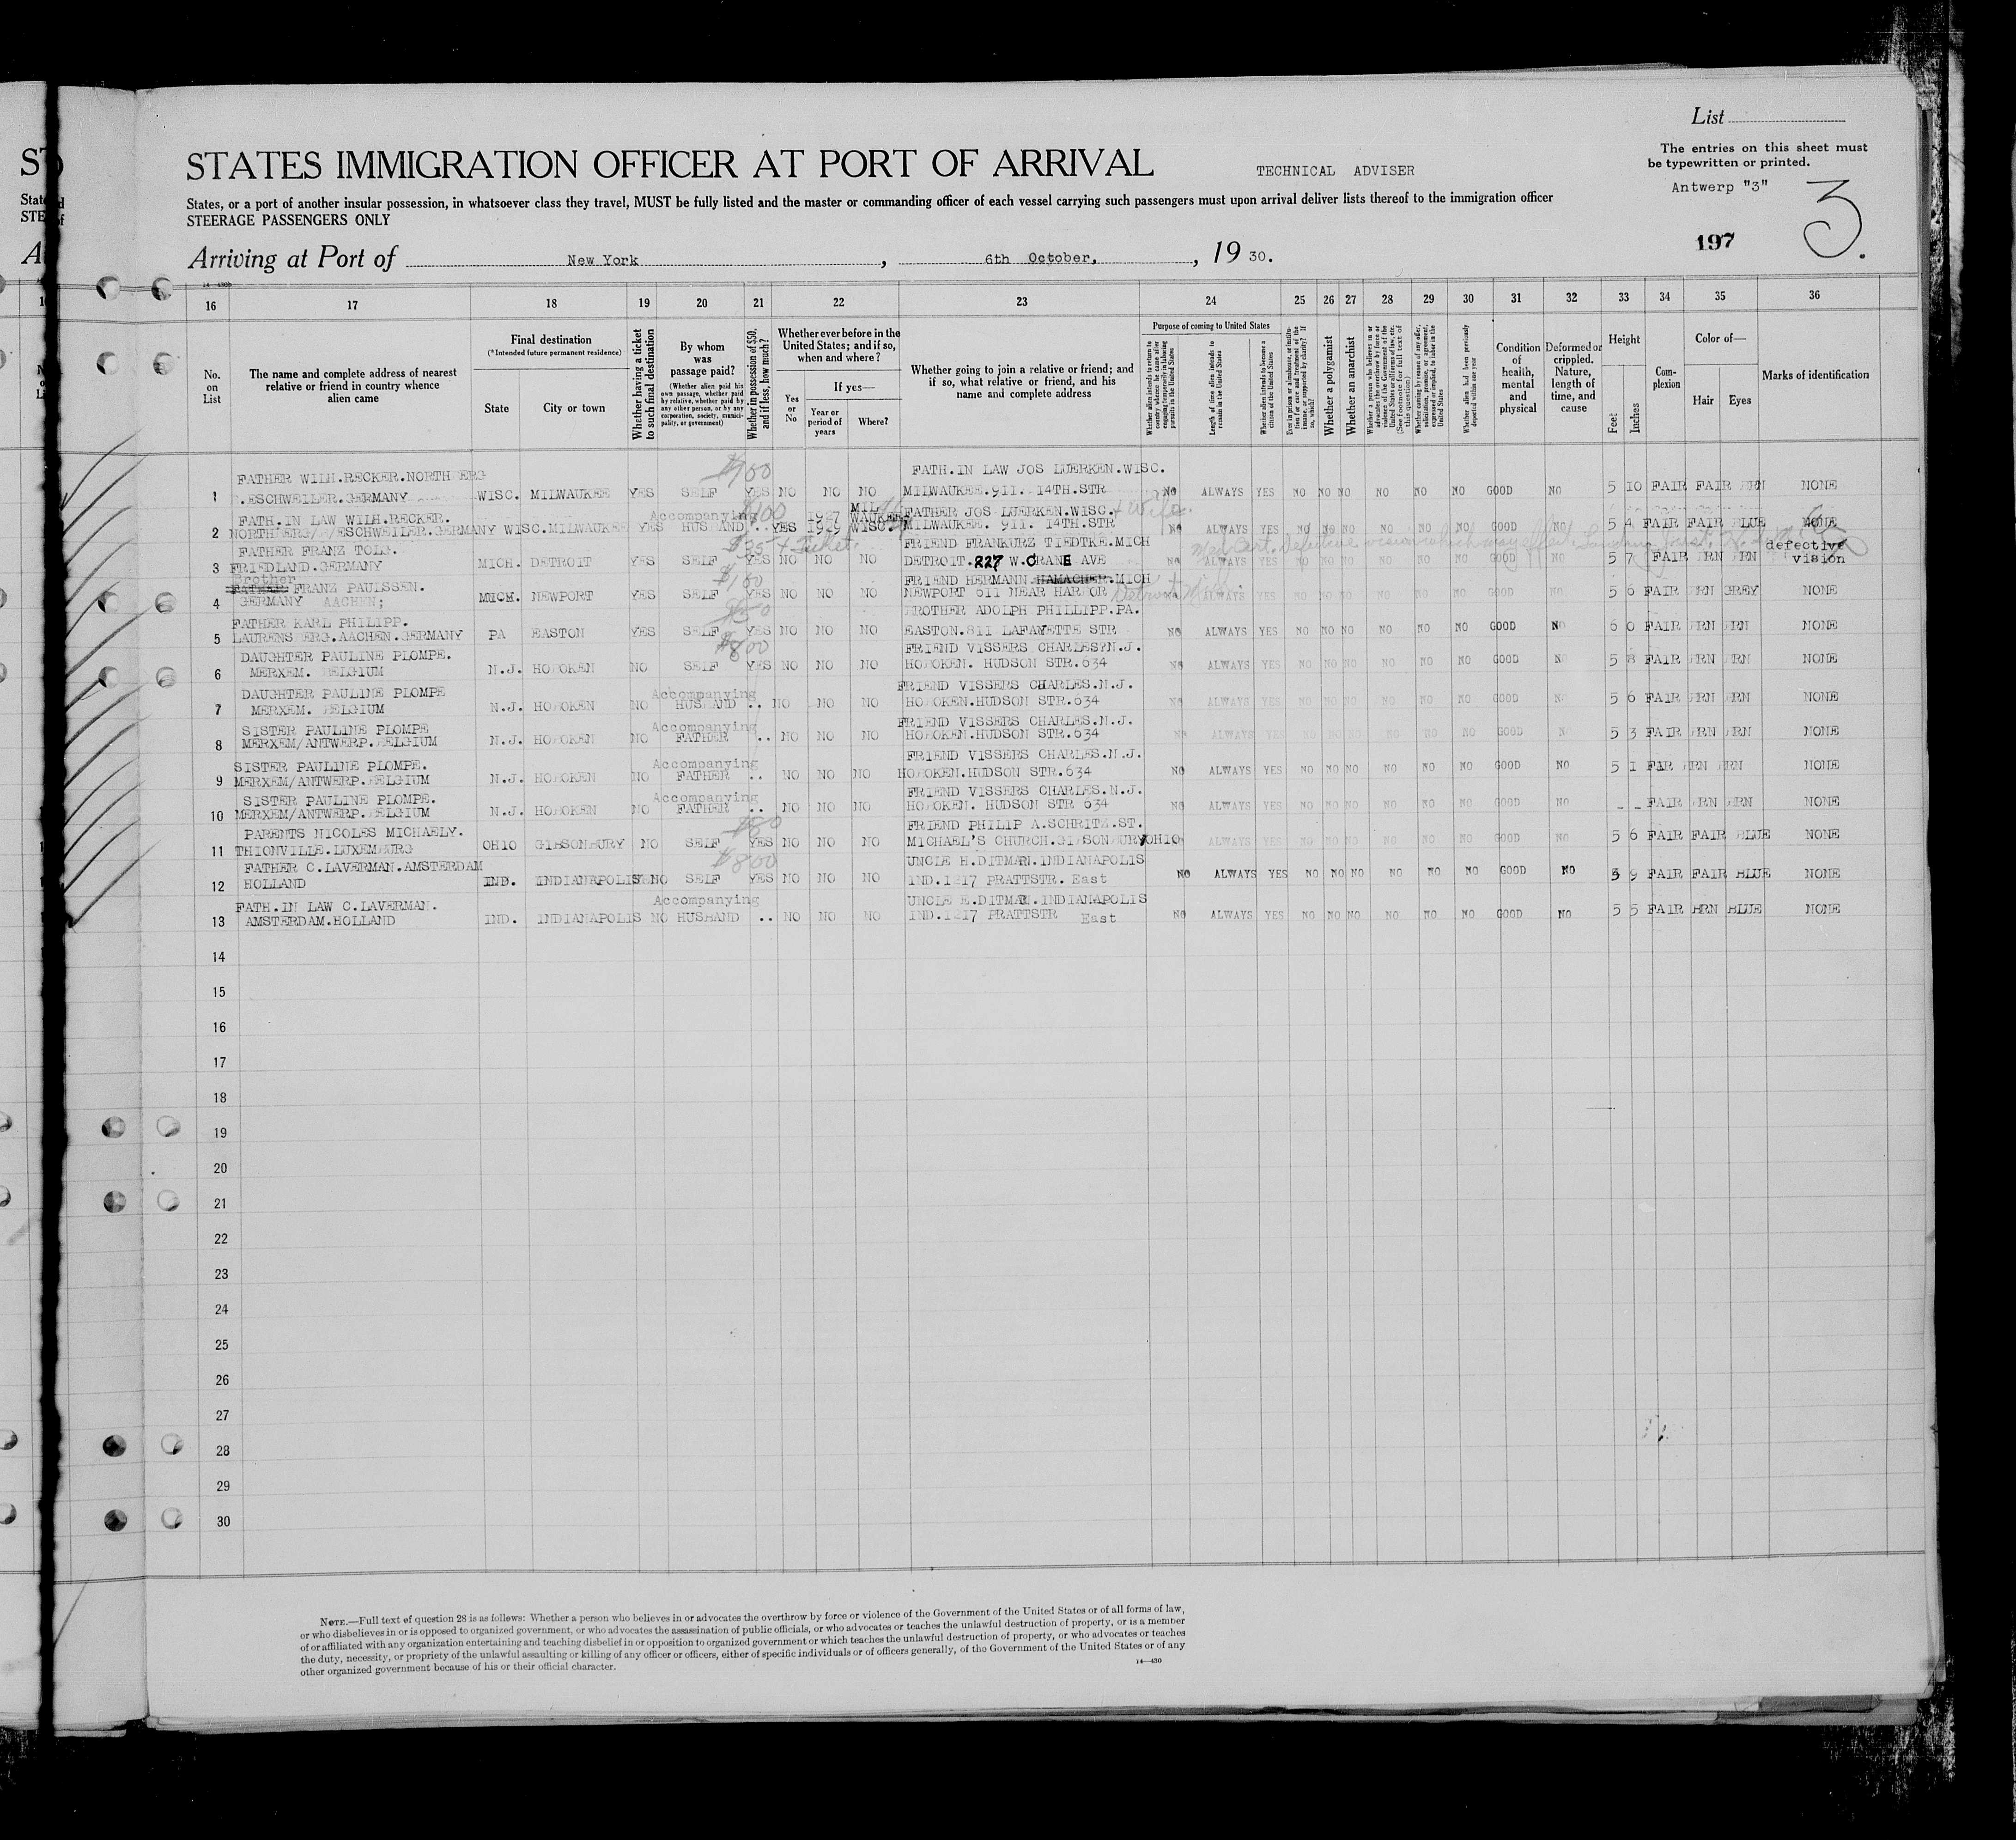 List
STATES IMMIGRATION OFFICER AT PORT OF ARRIVAL
TECHNICAL ADVISER
The entries on this sheet must
be typewritten or printed.
Antwerp "3"
3.
197
States, or a port of another insular possession, in whatsoever class they travel, MUST be fully listed and the master or commanding officer of each vessel carrying such passengers must upon arrival deliver lists thereof to the immigration officer
STEERAGE PASSENGERS ONLY
Arriving at Port of New York, 6th October, 19 30.
16 17 18 19 20 21 22 23 24 25 26 27 28 29 30 31 32 33 34 35 36
No. on List
The name and complete address of nearest relative or friend in country whence alien came
Final destination
(*Intended future permanent residence)
State
City or town
Whether having a ticket to such final destination
By whom was passage paid?
(Whether alien paid his own passage, whether paid by relative, whether paid by any other person, or by any corporation, society, municipality, or government)
Whether in possession of $50, and if less, how much?
Whether ever before in the United States; and if so, when and where?
Yes or No
If yes—
Year or period of years
Where?
Whether going to join a relative or friend; and if so, what relative or friend, and his name and complete address
Purpose of coming to United States
Length of time alien intends to remain in the United States
Whether alien intends to become a citizen of the United States
Whether a polygamist
Whether an anarchist
Condition of health, mental and physical
Deformed or crippled. Nature, length of time, and cause
Height
Feet
Inches
Complexion
Color of—
Hair
Eyes
Marks of identification
1 FATHER WILH.RECKER.NORTH ERG .ESCHWEILER.GERMANY WISC. MILWAUKEE YES SELF $100 YES NO NO NO FATH.IN LAW JOS LUERKEN.WISC. MILWAUKEE.911. 14TH.STR NO ALWAYS YES NO NO NO NO NO NO GOOD NO 5 10 FAIR FAIR RN NONE
2 FATH.IN LAW WILH.RECKER. NORTH ERG/ /ESCHWEILER.GERMANY WISC.MILWAUKEE YES Accompanying HUSBAND $100 .. YES 1927 1929 MILWAUKEE WISC. FATHER JOS LUERKEN.WISC. + Wife. MILWAUKEE. 911. 14TH.STR NO ALWAYS YES NO NO NO NO NO NO GOOD NO 5 4 FAIR FAIR BLUE NONE
3 FATHER FRANZ TOLG. FRIEDLAND.GERMANY MICH. DETROIT YES SELF $35 + Ticket. YES NO NO NO FRIEND FRANKURZ TIEDTKE.MICH DETROIT.227 W.CRANE AVE NO ALWAYS YES NO NO NO NO NO NO GOOD NO 5 7 FAIR RN RN defective vision
Med Cert. Defective vision which may affect
4 Brother FATHER FRANZ PAULSSEN. GERMANY AACHEN; MICH. NEWPORT YES SELF $180 YES NO NO NO FRIEND HERMANN HAMACHER.MICH NEWPORT 611 NEAR HARBOR Detroit Mich. NO ALWAYS YES NO NO NO NO NO NO GOOD NO 5 6 FAIR RN GREY NONE
5 FATHER KARL PHILIPP. LAURENS ERG.AACHEN.GERMANY PA EASTON YES SELF YES NO NO NO BROTHER ADOLPH PHILLIPP.PA. EASTON.811 LAFAYETTE STR NO ALWAYS YES NO NO NO NO NO NO GOOD NO 6 0 FAIR RN RN NONE
6 DAUGHTER PAULINE PLOMPE. MERXEM. BELGIUM N.J. HOBOKEN NO SELF $800 YES NO NO NO FRIEND VISSERS CHARLES N.J. HOBOKEN. HUDSON STR.634 NO ALWAYS YES NO NO NO NO NO NO GOOD NO 5 8 FAIR RN RN NONE
7 DAUGHTER PAULINE PLOMPE MERXEM. BELGIUM N.J. HOBOKEN NO Accompanying HUSBAND .. NO NO NO FRIEND VISSERS CHARLES.N.J. HOBOKEN.HUDSON STR.634 NO ALWAYS YES NO NO NO NO NO NO GOOD NO 5 6 FAIR RN RN NONE
8 SISTER PAULINE PLOMPE MERXEM/ANTWERP.BELGIUM N.J. HOBOKEN NO Accompanying FATHER .. NO NO NO FRIEND VISSERS CHARLES.N.J. HOBOKEN.HUDSON STR.634 NO ALWAYS YES NO NO NO NO NO NO GOOD NO 5 3 FAIR RN RN NONE
9 SISTER PAULINE PLOMPE. MERXEM/ANTWERP.BELGIUM N.J. HOBOKEN NO Accompanying FATHER .. NO NO NO FRIEND VISSERS CHARLES.N.J. HOBOKEN.HUDSON STR.634 NO ALWAYS YES NO NO NO NO NO NO GOOD NO 5 1 FAIR RN RN NONE
10 SISTER PAULINE PLOMPE. MERXEM/ANTWERP.BELGIUM N.J. HOBOKEN NO Accompanying FATHER .. NO NO NO FRIEND VISSERS CHARLES.N.J. HOBOKEN. HUDSON STR 634 NO ALWAYS YES NO NO NO NO NO NO GOOD NO - - FAIR RN RN NONE
11 PARENTS NICOLES MICHAELY. THIONVILLE.LUXEMBURG OHIO GIBSONBURY NO SELF YES NO NO NO FRIEND PHILIP A.SCHRITZ.ST. MICHAEL'S CHURCH.GIBSONBURY OHIO ALWAYS YES NO NO NO NO NO NO GOOD NO 5 6 FAIR FAIR BLUE NONE
12 FATHER C.LAVERMAN.AMSTERDAM HOLLAND IND. INDIANAPOLIS NO SELF $800 YES NO NO NO UNCLE H.DITMAR.INDIANAPOLIS IND.1217 PRATTSTR. East NO ALWAYS YES NO NO NO NO NO NO GOOD NO 5 9 FAIR FAIR BLUE NONE
13 FATH.IN LAW C.LAVERMAN. AMSTERDAM.HOLLAND IND. INDIANAPOLIS NO Accompanying HUSBAND .. NO NO NO UNCLE E.DITMAR.INDIANAPOLIS IND.1217 PRATTSTR East NO ALWAYS YES NO NO NO NO NO NO GOOD NO 5 5 FAIR BRN BLUE NONE
14
15
16
17
18
19
20
21
22
23
24
25
26
27
28
29
30
NOTE.—Full text of question 28 is as follows: Whether a person who believes in or advocates the overthrow by force or violence of the Government of the United States or of all forms of law,
or who disbelieves in or is opposed to organized government, or who advocates the assassination of public officials, or who advocates or teaches the unlawful destruction of property, or is a member
of or affiliated with any organization entertaining and teaching disbelief in or opposition to organized government or which teaches the unlawful destruction of property, or who advocates or teaches
the duty, necessity, or propriety of the unlawful assaulting or killing of any officer or officers, either of specific individuals or of officers generally, of the Government of the United States or of any
other organized government because of his or their official character.
14—430